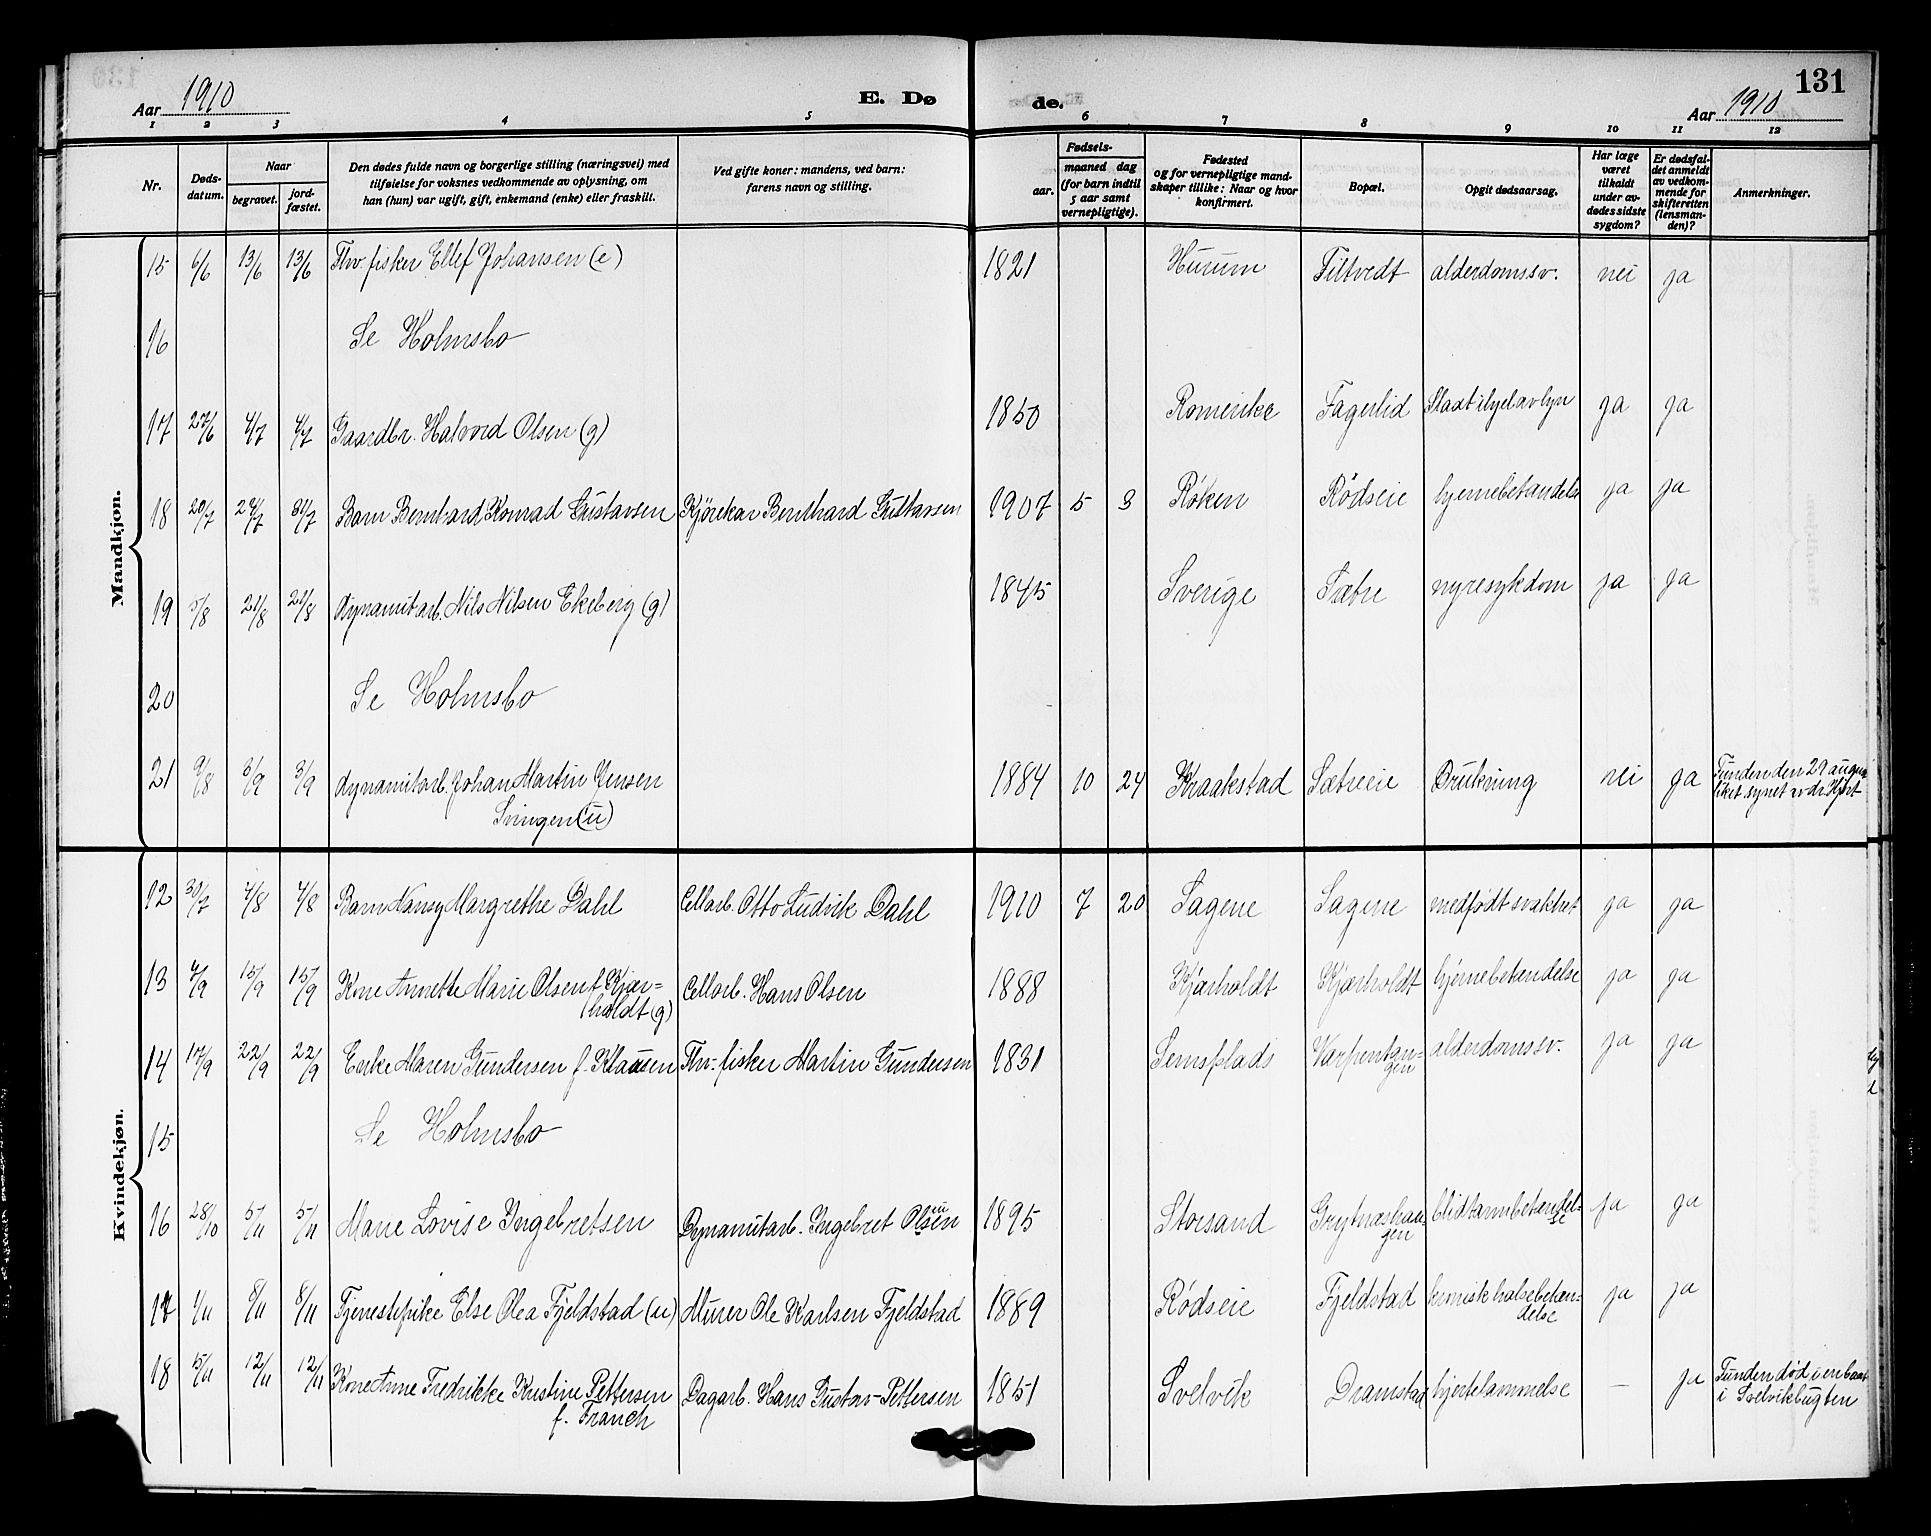 131
Aar 1910 E. Dø de. Aar 1910
1 2 3 4 5 6 7 8 9 10 11 12
Nr. Døds-datum. Naar begravet. jord-fæstet. Den dødes fulde navn og borgerlige stilling (næringsvei) med tilføielse for voksnes vedkommende av oplysning, om han (hun) var ugift, gift, enkemand (enke) eller fraskilt. Ved gifte koner: mandens, ved barn: farens navn og stilling. Fødsels- aar. maaned dag (for barn indtil 5 aar samt vernepligtige). Fødested og for vernepligtige mand-skaper tillike: Naar og hvor konfirmert. Bopæl. Opgit dødsaarsag. Har læge været tilkaldt under av-dødes sidste sygdom? Er dødsfal-det anmeldt av vedkom-mende for skifteretten (lensman-den)? Anmerkninger.
Mandkjøn.
15 6/6 13/6 13/6 Fhv. fisker Ellef Johansen (e) 1821 Hurum Tiltvedt alderdomssv. nei ja
16 Se Holmsbo
17 27/6 4/7 4/7 Gaardbr. Halvord Olsen (g) 1850 Romerike Fagerlid Slaat ihjel av lyn ja ja
18 20/7 24/7 31/7 Barn Bernhard Konrad Gustavsen Kjørekar Bernthard Gustavsen 1907 5 3 Røken Rødseie hjernebetændels ja ja
19 5/8 21/8 21/8 Dynamitarb. Nils Nilsen Ekeberg (g) 1845 Sverige Sætre nyresykdom ja ja
20 Se Holmsbo
21 9/8 3/9 3/9 Dynamitarb. Johan Martin Jensen 1884 10 24 Kraakstad Sætreeie Drukning nei ja Funden den 29 august
Svingen (u) liket synet av dr. Hjort
Kvindekjøn.
12 30/7 4/8 4/8 Barn Nansy Margrethe Dahl Cellarb. Otto Ludvik Dahl 1910 7 20 Sagene Sagene medfødt svakhet ja ja
13 4/9 15/9 15/9 Kone Annette Marie Olsen f. Kjær= Cellarb. Hans Olsen 1888 Kjærholdt Kjærholdt hjernebetændelse ja ja
holdt (g)
14 17/9 22/9 22/9 Enke Maren Gundersen f. Klausen Fhv. fisker Martin Gundersen 1831 Semsplads Varpentan= alderdomssv. ja ja
gen
15 Se Holmsbo
16 28/10 5/11 5/11 Marie Lovise Ingebretsen Dynamitarb. Ingebret Olsen 1895 Storsand Grytneshau= blidtarmbetændel= ja ja
gen se
17 4/11 8/11 8/11 Tjenestepike Else Olea Fjeldstad (u) Murer Ole Karlsen Fjeldstad 1889 Rødseie Fjeldstad kronisk halsebetæn= ja ja
delse
18 5/11 12/11 12/11 Kone Anne Fredrikke Kristine Pettersen Dagarb. Hans Gustav Pettersen 1851 Svelvik Dramstad hjertelammelse — ja Funden død i en baat
f. Franch i Svelvikbugten